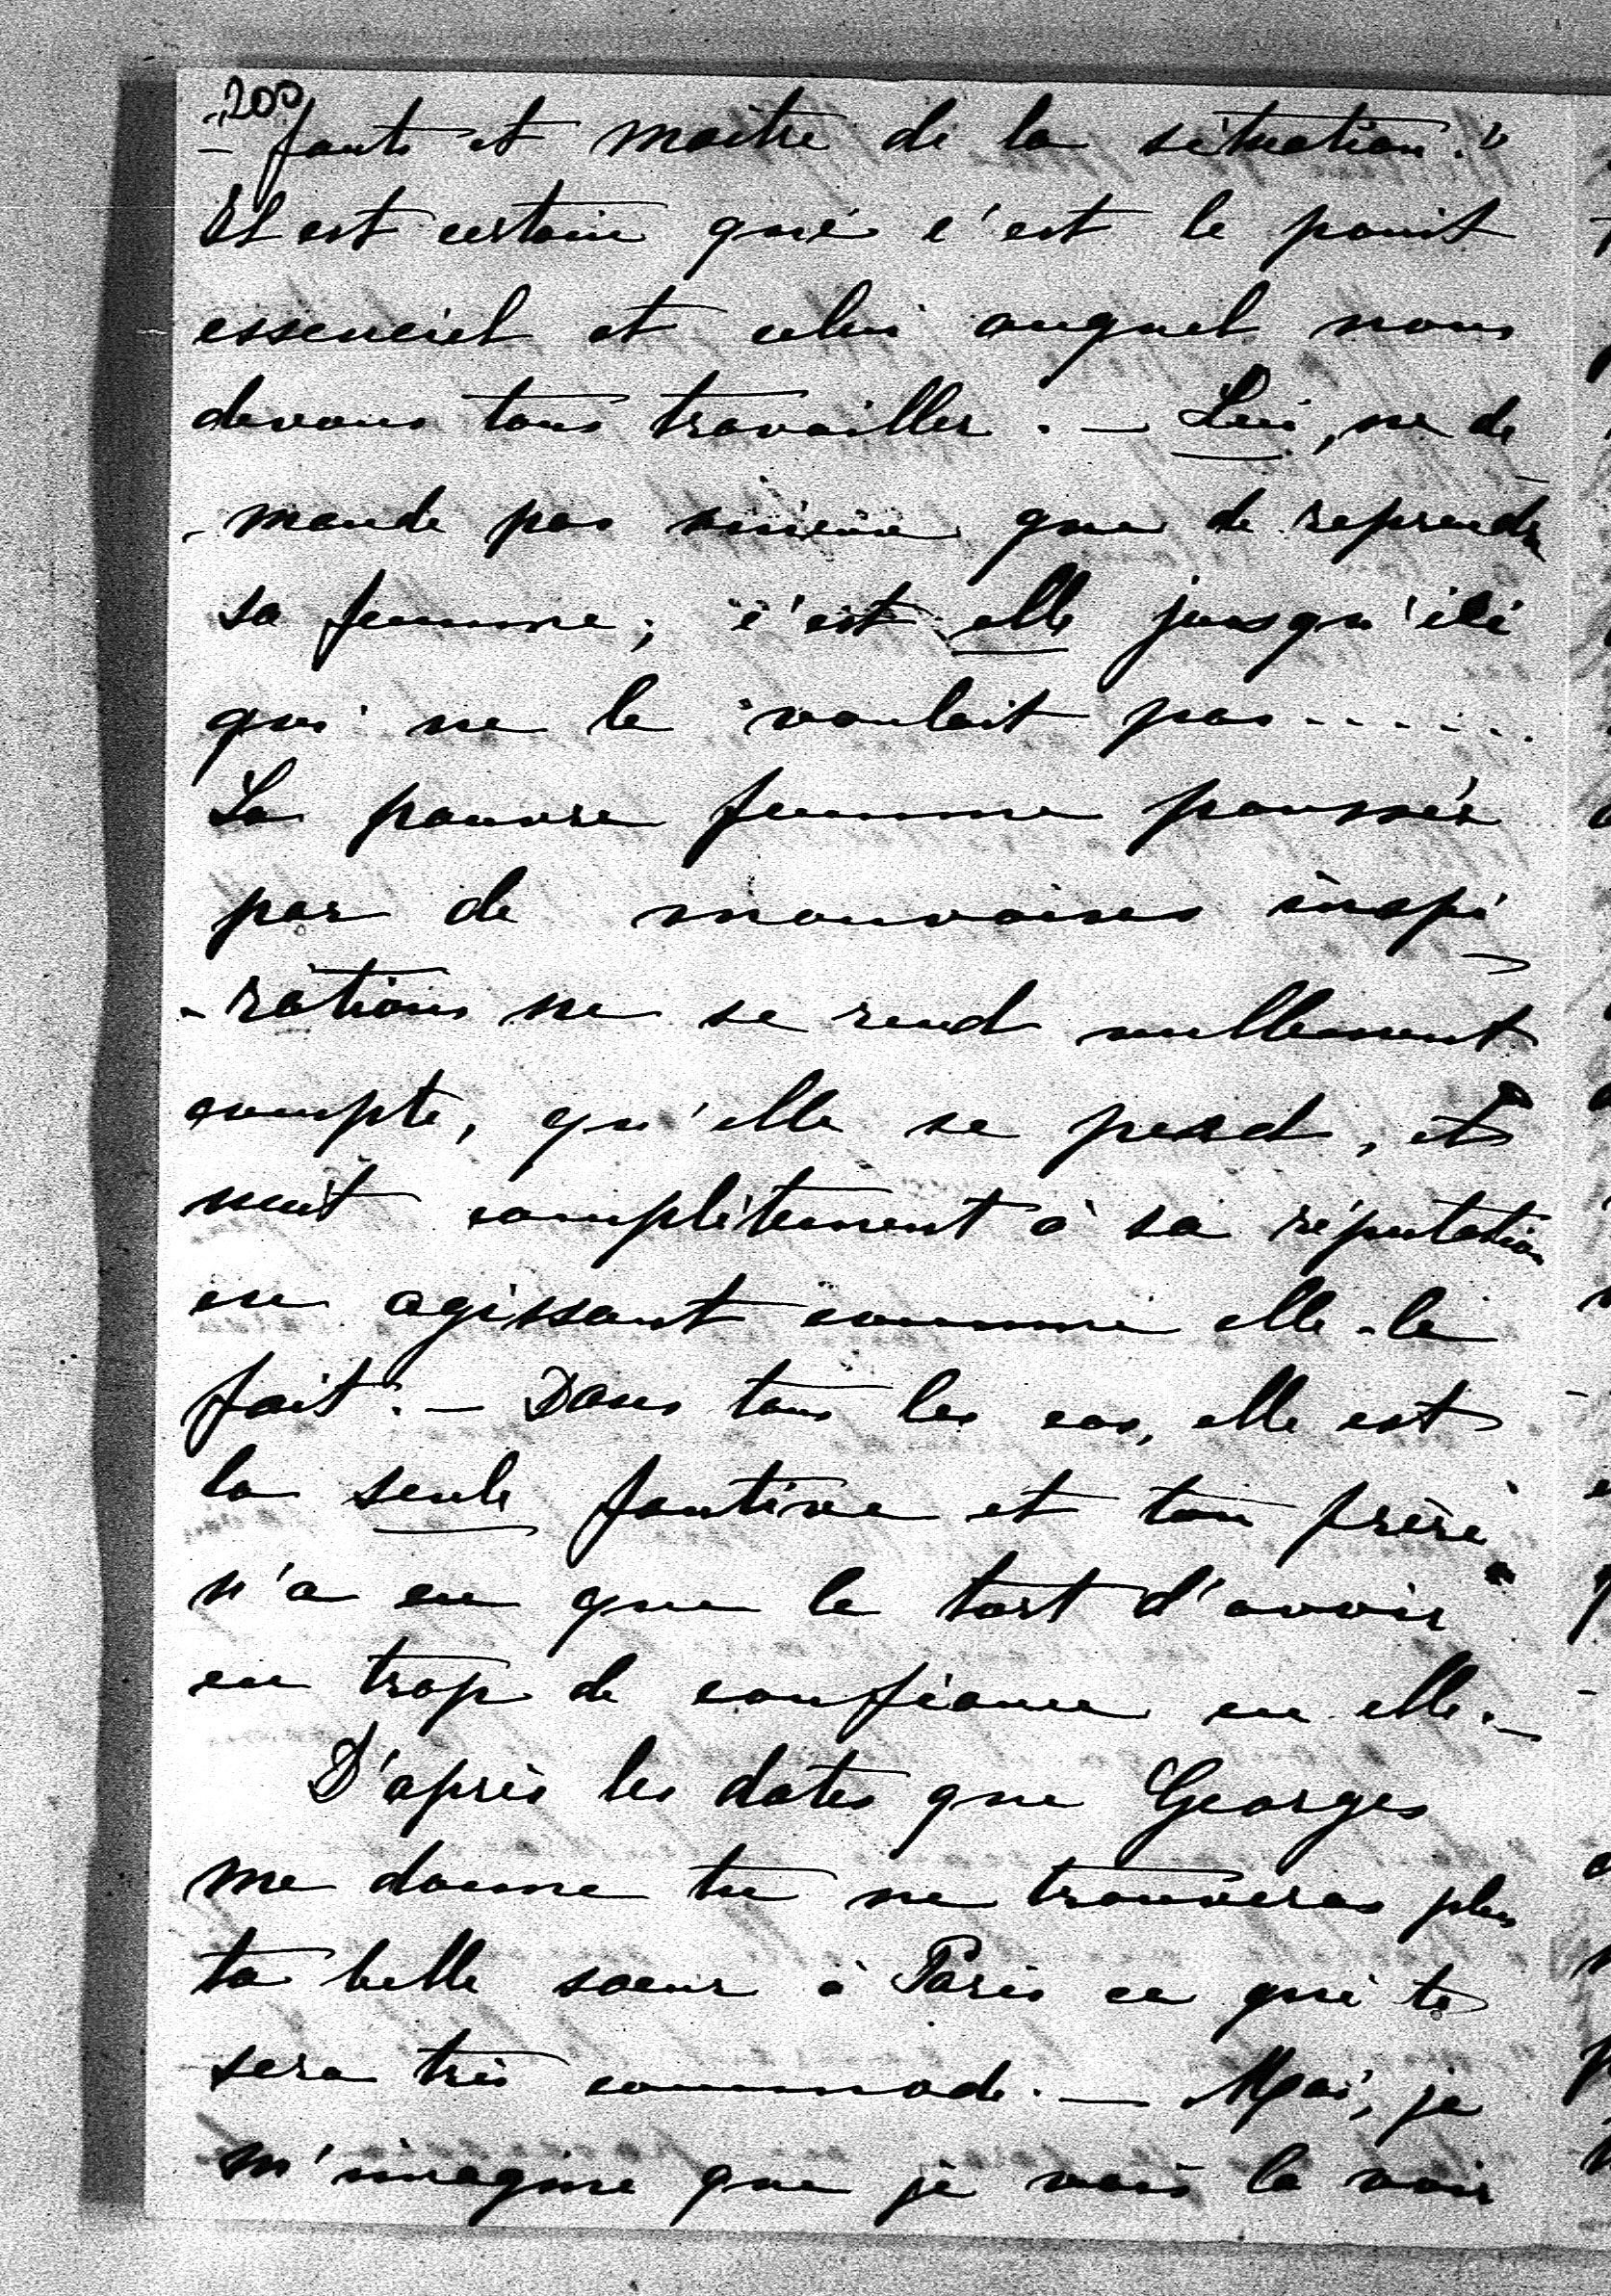 200
- fants et maître de la situation."
Il est certain que c'est le point
essenciel et celui auquel nous
devons tous travailler. — Lui, ne de
- mande pas mieux que de reprendre
sa femme; c'est elle jusqu'ici
qui ne le voulait pas......
La pauvre femme poussée
par de mauvaises inspi
- rations ne se rend nullement
compte, qu'elle se perd, et
nuit complètement à sa réputation
en agissant comme elle le
fait. — Dans tous les cas, elle est
la seule fautive et ton frère
n'a eu que le tort d'avoir
eu trop de confiance en elle. —
D'après les dates que Georges
me donne tu ne trouveras plus
ta belle sœur à Paris ce qui te
sera très commode. — Moi, je
m'imagine que je vais la voir